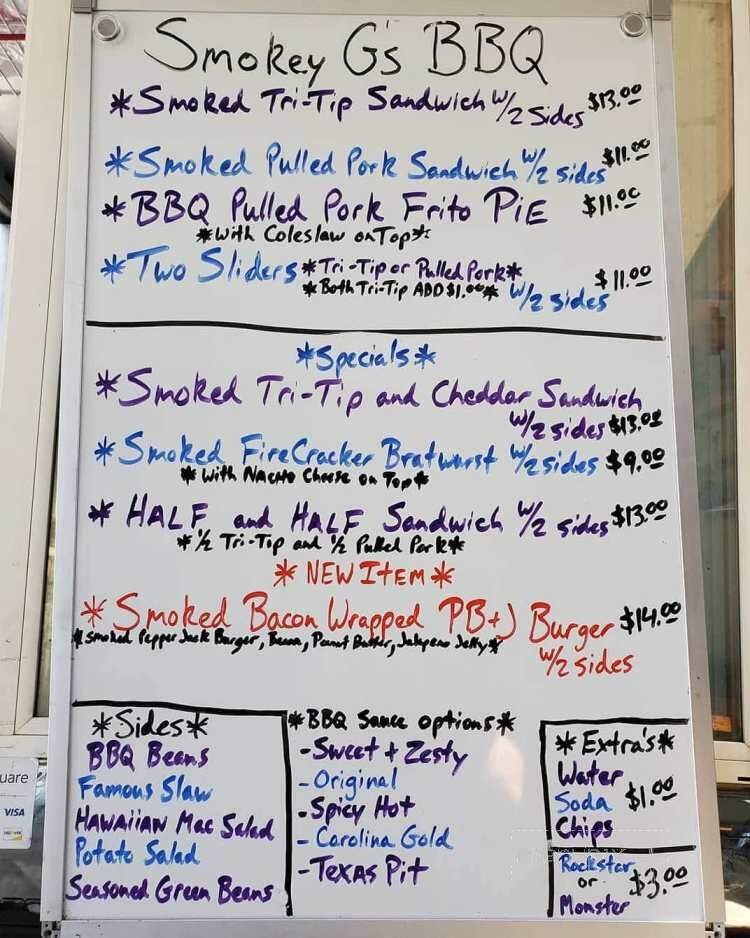 Smokey G's BBQ
*Smoked Tri-Tip Sandwich w/2 Sides $13.00
*Smoked Pulled Pork Sandwich w/2 sides $11.00
*BBQ Pulled Pork Frito PiE $11.00
*With Coleslaw on Top*
*Two Sliders *Tri-Tip or Pulled Pork* $11.00
*Both Tri-Tip ADD $1.00* w/2 sides
*Specials*
*Smoked Tri-Tip and Cheddar Sandwich
w/2 sides $13.00
*Smoked FireCracker Bratwurst w/2 sides $9.00
*With Nacho Cheese on Top*
*HALF and HALF Sandwich w/2 sides $13.00
*½ Tri-Tip and ½ Pulled Pork*
*NEW Item*
*Smoked Bacon Wrapped PB+J Burger $14.00
*Smoked Pepper Jack Burger, Bacon, Peanut Butter, Jalapeno Jelly*
w/2 sides
*Sides*
BBQ Beans
Famous Slaw
HAWAiiAN Mac Salad
Potato Salad
Seasoned Green Beans
*BBQ Sauce options*
-Sweet + Zesty
-Original
-Spicy Hot
-Carolina Gold
-Texas Pit
*Extra's*
Water
Soda $1.00
Chips
Rockstar
or $3.00
Monster
uare
VISA